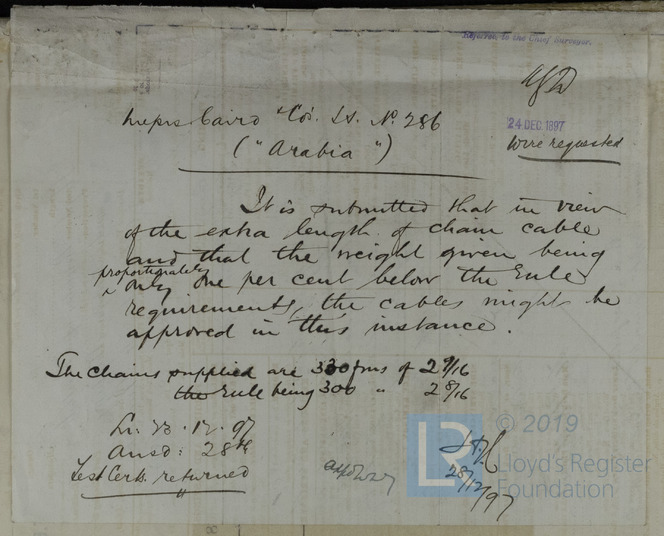 Referred to the Chief Surveyor.
24 DEC. 1897
Wire requested
Messrs Caird & Co's. I.S. No. 286
("Arabia")
It is submitted that in view
of the extra length of chain cable
and that the weight given being
proportionately
only one per cent below the Rule
requirements, the cables might be
approved in this instance.
The chains supplied are 330 fms of 2 9/16
the Rule being 300 " 2 8/16
Lr. 23.12.97
Ansd: 28th
Test Certs. returned
28/12/97
LR
© 2019
Lloyd's Register
Foundation